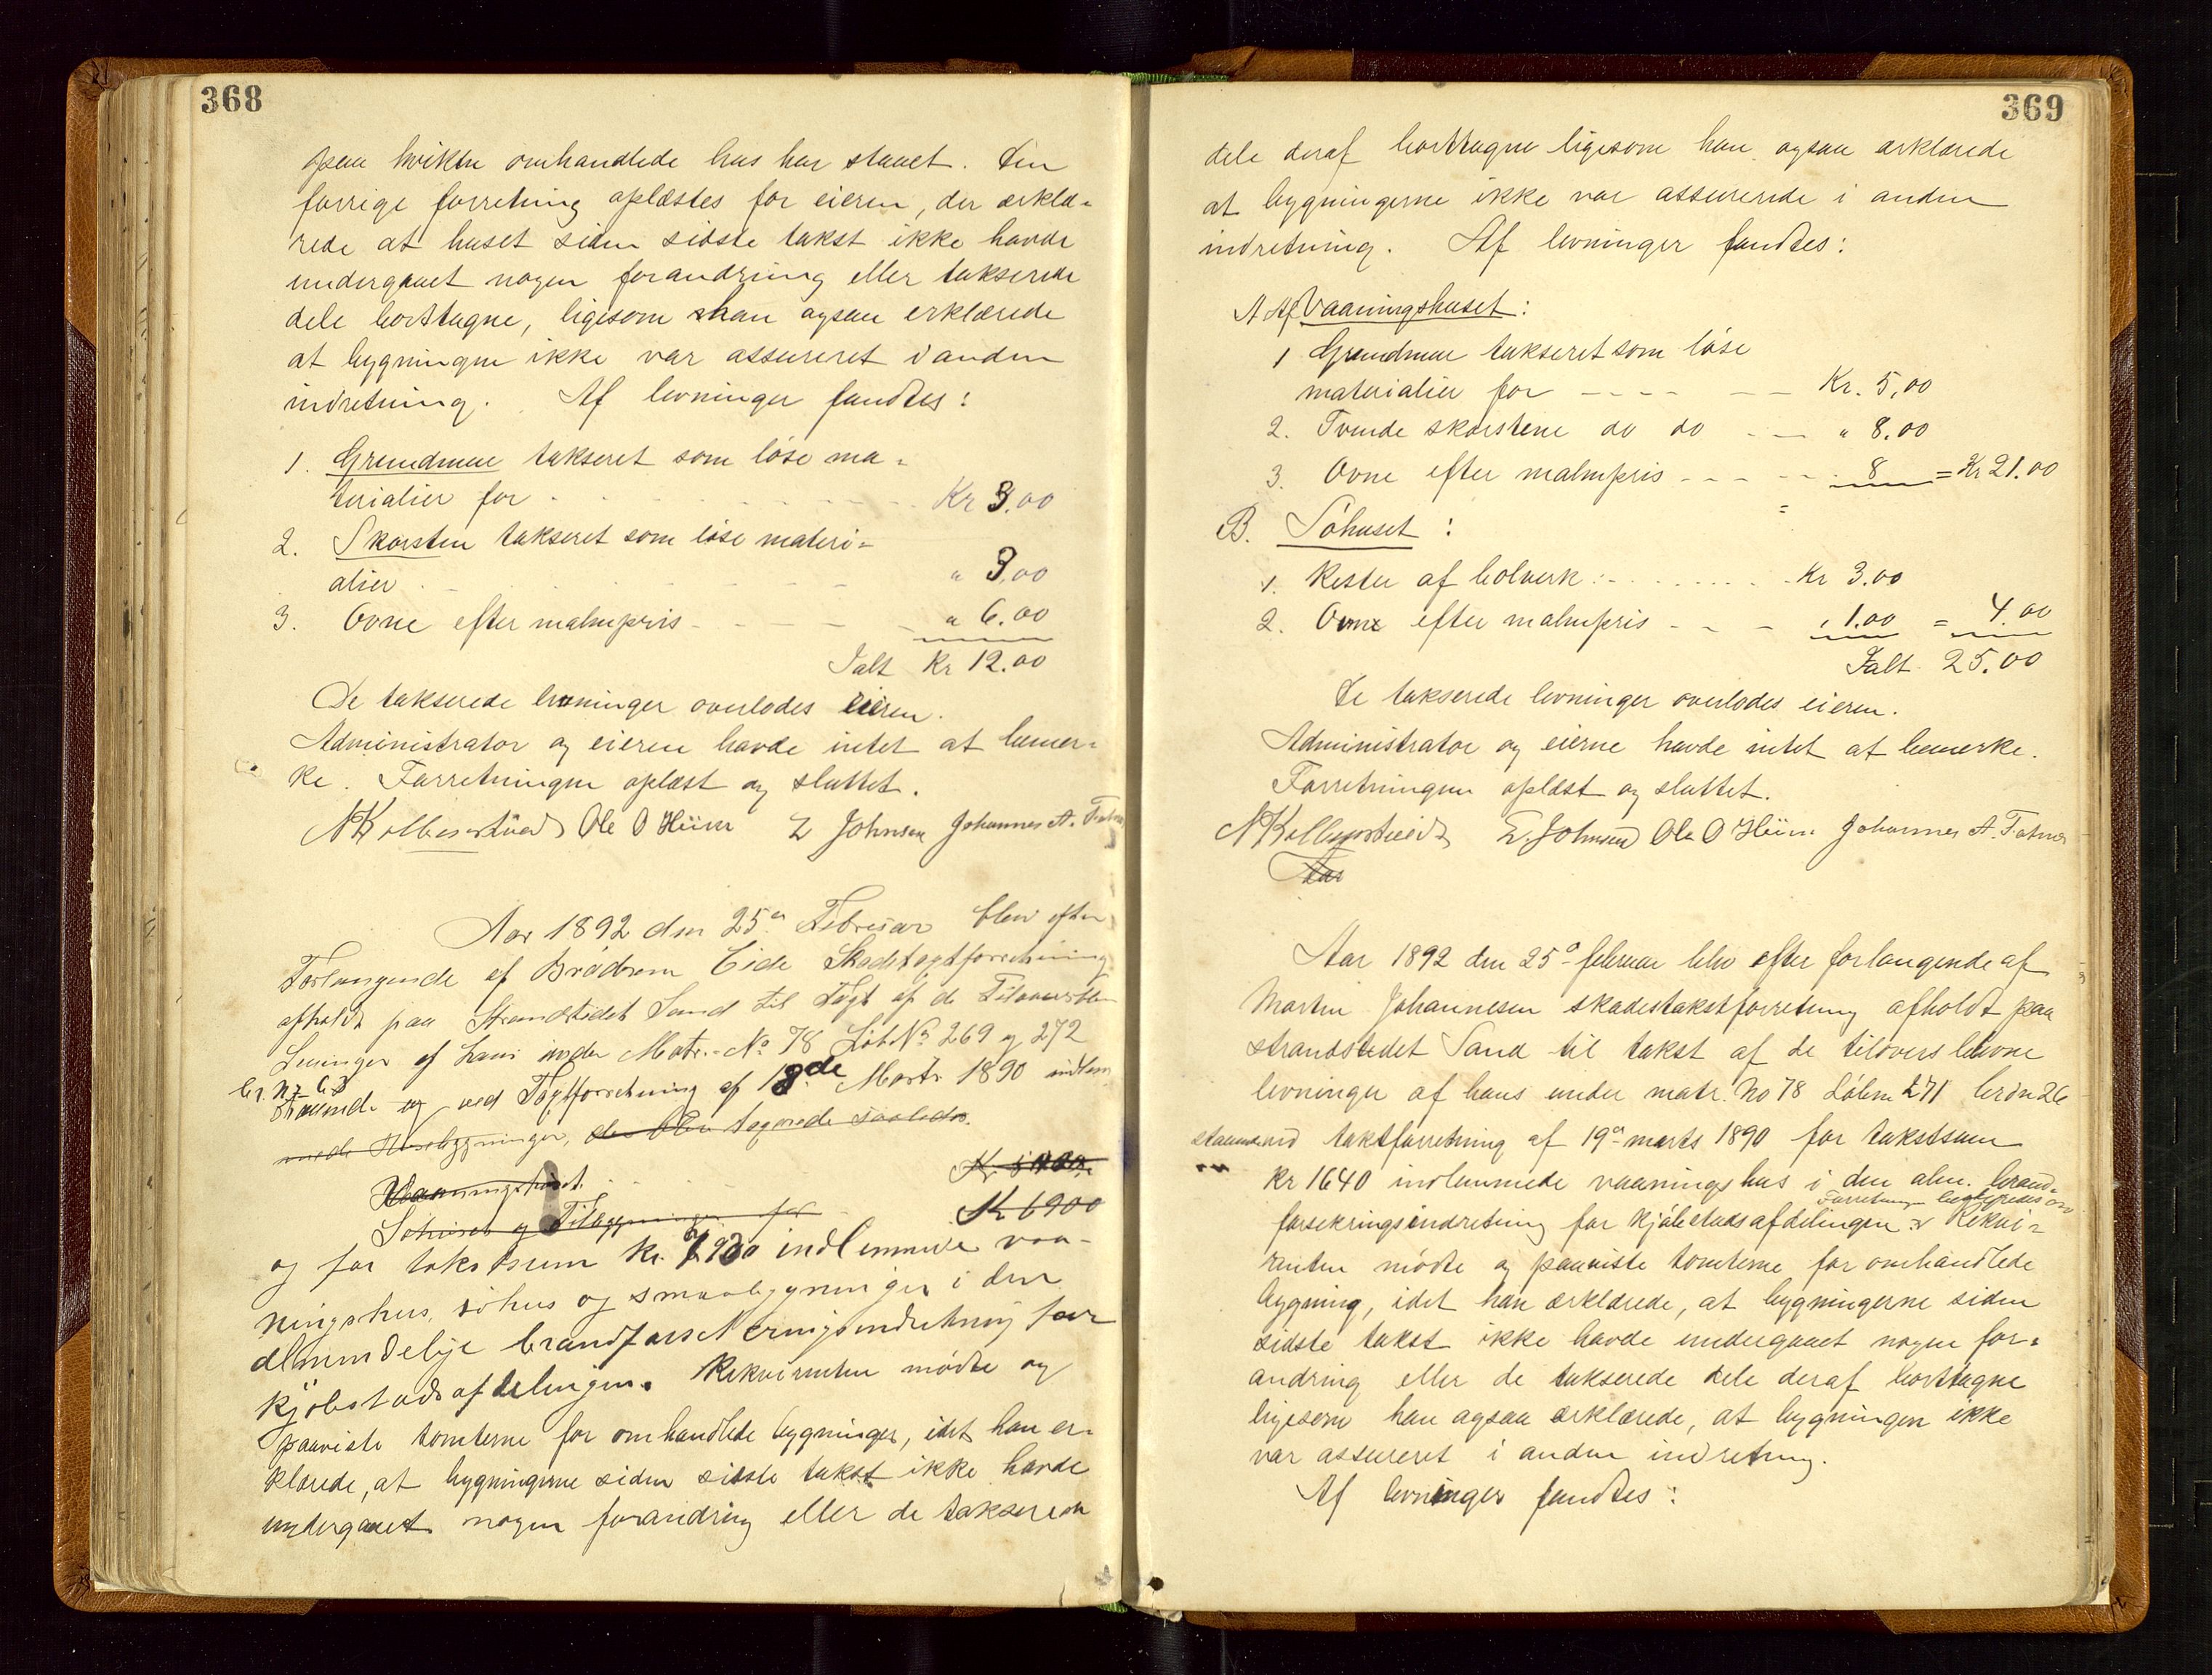 368
paa hvikke omhandlede hus har staaet. Den
forrige forretning oplæstes for eieren, der erklæ-
rede at huset siden sidste takst ikke havde
undergaaet nogen forandring eller takserede
dele borttagne, ligesom han ogsaa erklærede
at bygningen ikke var assureret i anden
indretning. Af levninger fandtes:
1. Grundmur takseret som løse ma-
terialier for Kr 3.00
2. Skorsten takseret som løse materi-
alier " 3.00
3. Ovne efter malmpris " 6.00
Ialt Kr 12.00
De takserede levninger overlodes eieren.
Administrator og eieren havde intet at bemer-
ke. Forretningen oplæst og sluttet.
Ole O Hiim E Johnsen Johannes A.
Aar 1892 den 25de Februar blev efter
Forlangende af Brødrene Eide Skadetagtforretning
afholdt paa Strandstedet Sand til Tagt af de Tiloversblevne
Levninger af hans under Matr. No 78 Løb No 269 og 272
br. No
staaende og ved Tagtforretning af 18de Marts 1890 indlem
mede Husebygninger, der blev tagerede saaledes.
Vaaningshuset
Søhuset og Tilbygninger for Kr 6900
og for takstsum kr. indlemmede vaa-
ningshus, søhus og smaabygninger i den
almindelige brandforsikringsindretning for
kjøbstadsafdelingen. Rekvirenten mødte og
paaviste tomterne for omhandlede bygninger, idet han er-
klærede, at bygningerne siden sidste takst ikke havde
undergaaet nogen forandring eller de takserede
369
dele deraf borttagne ligesom han ogsaa erklærede
at bygningerne ikke var assurerede i anden
indretning. Af levninger fandtes:
A Af Vaaningshuset:
1 Grundmur takseret som løse
materialier for Kr. 5,00
2. Tvende skorstene do do " 8,00
3. Ovne efter malmpris 8 = Kr 21.00
B. Søhuset:
1. Rester af bolverk Kr 3.00
2. Ovne efter malmpris " 1.00 = 4.00
Ialt 25.00
De takserede levninger overlodes eieren.
Administrator og eierne havde intet at bemerke.
Forretningen oplæst og sluttet.
E. Johnsen Ole O Hiim Johannes A.
Aar
Aar 1892 den 25de februar blev efter forlangende af
Martin Johannesen skadestakstforretning afholdt paa
strandstedet Sand til takst af de tilovers blevne
levninger af hans under matr. No 78 Løbno 271 brdn 26
staaende ved takstforretning af 19de marts 1890 for takstsum
kr 1640 indlemmede vaaningshus i den alm. brand-
Forretningen
forsikringsindretning for kjøbstadsafdelingen. Rekvi-
renten mødte og paaviste tomterne for omhandlede
bygning, idet han erklærede, at bygningerne siden
sidste takst ikke havde undergaaet nogen for-
andring eller de takserede dele deraf borttagne
ligesom han ogsaa erklærede, at bygningen ikke
var assureret i anden indretning.
Af levninger fandtes: